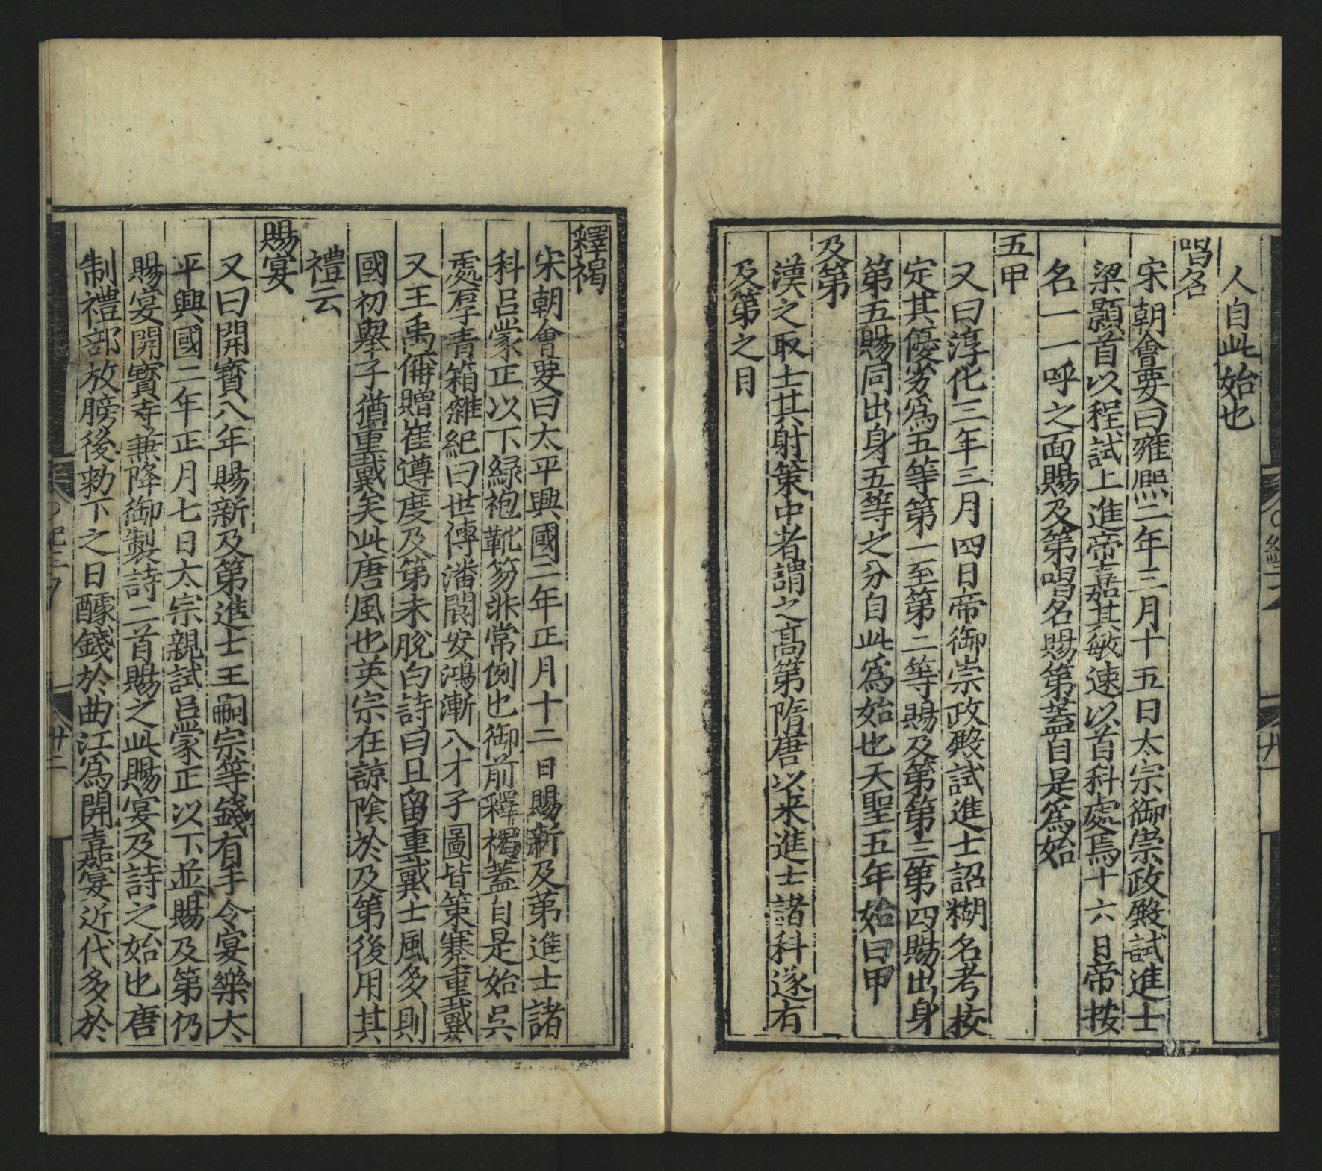 人自此始也
唱名
宋朝會要曰雍熙二年三月十五日太宗御崇政殿試進士
梁顥首以程試上進帝嘉其敏速以首科處焉十六日帝按
名一一呼之面賜及第唱名賜第蓋自是為始
五甲
又曰淳化三年三月四日帝御崇政殿試進士詔糊名考校
定其優劣為五等第一至第二等賜及第第三第四賜出身
第五賜同出身五等之分自此為始也天聖五年始曰甲
及第
漢之取士其射策中者謂之高第隋唐以来進士諸科遂有
及第之目
釋褐
宋朝會要曰太平興國二年正月十二日賜新及第進士諸
科呂蒙正以下緑袍靴笏非常例也御前釋褐蓋自是始吳
處厚青箱雜紀曰世傳潘閬安鴻漸八才子圖皆策蹇重戴
又王禹偁贈崔遵度及第未脫白詩曰且留重戴士風多則
國初舉子猶重戴矣此唐風也英宗在諒陰於及第後用其
禮云
賜宴
又曰開寶八年賜新及第進士王嗣宗等錢有手令宴樂太
平興國二年正月七日太宗親試呂蒙正以下並賜及第仍
賜宴開寶寺兼降御製詩二首賜之此賜宴及詩之始也唐
制禮部放牓後勑下之日醵錢於曲江為聞嘉宴近代多於
卅一
卅二